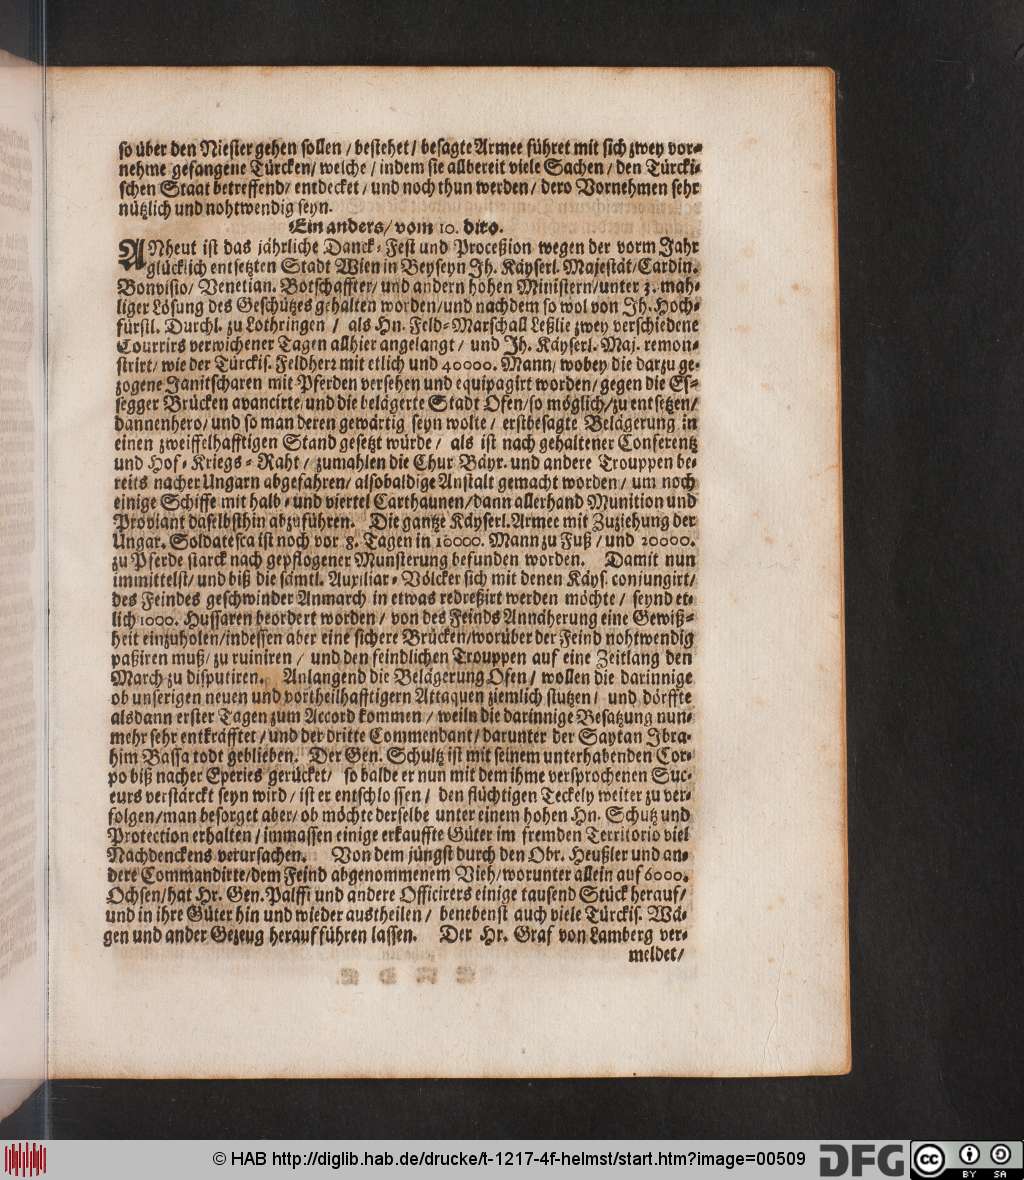 so über den Niester gehen sollen / bestehet / besagte Armee führet mit sich zwey vor-
nehme gefangene Türcken / welche / indem sie allbereit viele Sachen / den Türcki-
schen Staat betreffend / entdecket / und noch thun werden / dero Vornehmen sehr
nützlich und nohtwendig seyn.
Ein anders / vom 10. dito.
ANheut ist das jährliche Danck-Fest und Proceßion wegen der vorm Jahr
glücklich entsetzten Stadt Wien in Beyseyn Ih. Käyserl. Majestät / Cardin.
Bonvisio / Venetian. Botschaffter / und andern hohen Ministern / unter 3. mah-
liger Lösung des Geschützes gehalten worden / und nachdem so wol von Ih. Hoch-
fürstl. Durchl. zu Lothringen / als Hn. Feld-Marschall Leßlie zwey verschiedene
Courrirs verwichener Tagen allhier angelangt / und Ih. Käyserl. Maj. remon-
strirt / wie der Türckis. Feldherr mit etlich und 40000. Mann / wobey die darzu ge-
zogene Janitscharen mit Pferden versehen und equipagirt worden / gegen die Es-
segger Brücken avancirte / und die belägerte Stadt Ofen / so möglich / zu entsetzen /
dannenhero / und so man deren gewärtig seyn wolte / erstbesagte Belägerung in
einen zweiffelhafftigen Stand gesetzt würde / als ist nach gehaltener Conferentz
und Hof-Kriegs-Raht / zumahlen die Chur Bäyr. und andere Trouppen be-
reits nacher Ungarn abgefahren / alsobaldige Anstalt gemacht worden / um noch
einige Schiffe mit halb- und viertel Carthaunen / dann allerhand Munition und
Proviant daselbsthin abzuführen. Die gantze Käyserl. Armee mit Zuziehung der
Ungar. Soldatesca ist noch vor 8. Tagen in 16000. Mann zu Fuß / und 20000.
zu Pferde starck nach gepflogener Munsterung befunden worden. Damit nun
immittelst / und biß die sämtl. Auxiliar-Völcker sich mit denen Käys. conjungirt /
des Feindes geschwinder Anmarch in etwas redreßirt werden möchte / seynd et-
lich 1000. Hussaren beordert worden / von des Feinds Annäherung eine Gewiß-
heit einzuholen / indessen aber eine sichere Brücken / worüber der Feind nohtwendig
paßiren muß / zu ruiniren / und den feindlichen Trouppen auf eine Zeitlang den
March zu disputiren. Anlangend die Belägerung Ofen / wollen die darinnige
ob unserigen neuen und vortheilhafftigern Attaquen ziemlich stutzen / und dörffte
alsdann erster Tagen zum Accord kommen / weiln die darinnige Besatzung nun-
mehr sehr entkräfftet / und der dritte Commendant / darunter der Saytan Ibra-
him Bassa todt geblieben. Der Gen. Schultz ist mit seinem unterhabenden Cor-
po biß nacher Eperies gerücket / so balde er nun mit dem ihme versprochenen Suc-
curs verstärckt seyn wird / ist er entschlossen / den flüchtigen Teckely weiter zu ver-
folgen / man besorget aber / ob möchte derselbe unter einem hohen Hn. Schutz und
Protection erhalten / immassen einige erkauffte Güter im fremden Territorio viel
Nachdenckens verursachen. Von dem jüngst durch den Obr. Heußler und an-
dere Commandirte / dem Feind abgenommenem Vieh / worunter allein auf 6000.
Ochsen / hat Hr. Gen. Palffi und andere Officirers einige tausend Stück herauf /
und in ihre Güter hin und wieder austheilen / benebenst auch viele Türckis. Wä-
gen und ander Gezeug herauf führen lassen. Der Hr. Graf von Lamberg ver-
meldet /
© HAB http://diglib.hab.de/drucke/t-1217-4f-helmst/start.htm?image=00509
DFG
cc BY SA